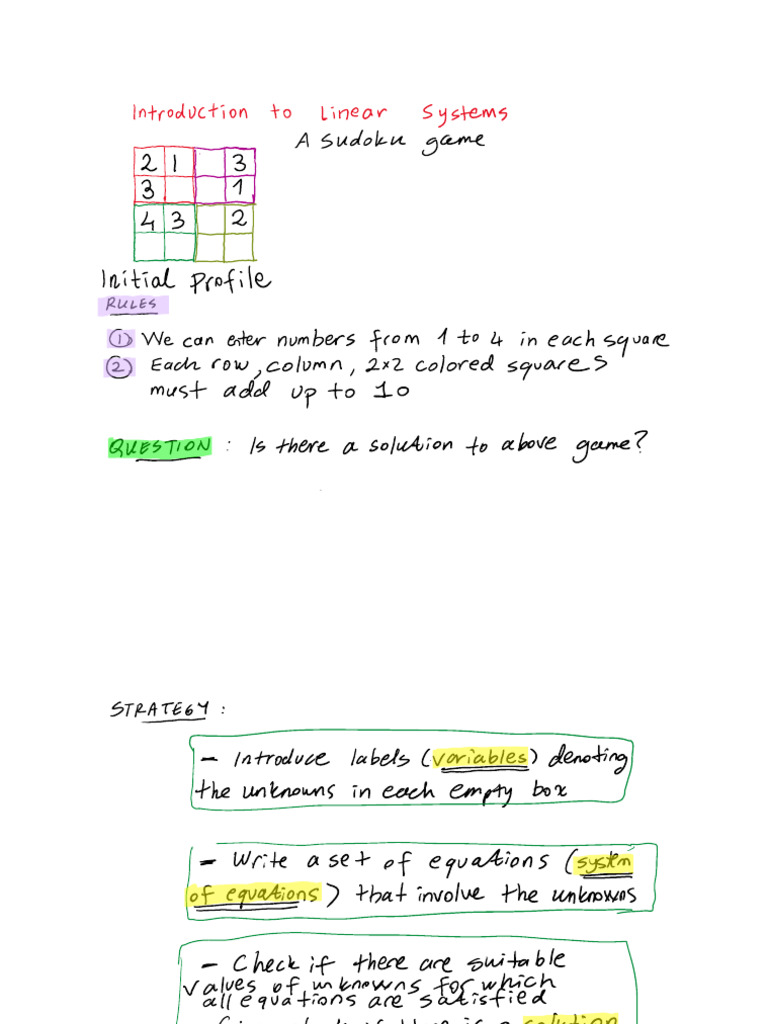 Introduction to Linear Systems
A Sudoku game
2 1 3
3 1
4 3 2
Initial Profile
RULES
① We can enter numbers from 1 to 4 in each square
② Each row, column, 2×2 colored squares
must add up to 10
QUESTION : Is there a solution to above game?
STRATEGY :
- Introduce labels (variables) denoting
the unknowns in each empty box
- Write a set of equations (system
of equations) that involve the unknowns
- Check if there are suitable
values of unknowns for which
all equations are satisfied
solution